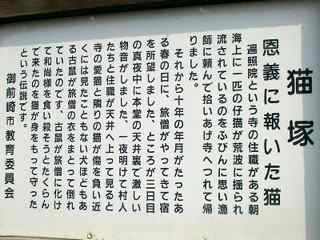 猫塚
恩義に報いた猫
遍照院という寺の住職がある朝
海上に一匹の仔猫が荒波に揺られ
流されているのをふびんに思い漁
師に頼んで拾いあげ寺へつれて帰
りました。
それから十年の年月がたったあ
る春の日に、旅僧がやってきて宿
を所望しました、ところが三日目
の真夜中に本堂の天井裏で激しい
物音がしました、一夜明けて村人
たちと住職が天井へ上って見ると
寺の愛猫と隣りの猫が傷を負い近
くには見たこともない犬ほどもあ
る古鼠が旅僧の衣をまとって倒れ
ていたのです、古鼠が旅僧に化け
て和尚様を食い殺そうとたくらん
で来たのを猫が身をもって守った
という伝説です。
御前崎市教育委員会